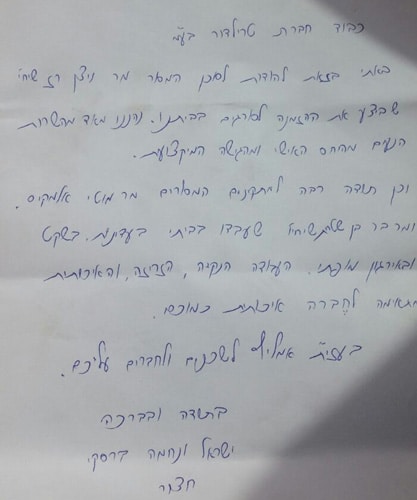 כבוד חברת טרילדור בע"מ
באתי בזאת להודות לסוכן המסור מר ניצן רז שיחי'
שביצע את ההזמנה לסורגים בביתנו. נהננו מאד מהשרות
הנעים מהיחס האישי ומהגישה המקצועית.
וכן תודה רבה למתקינים המסורים מר מוטי אלמקיס.
ומר בר בן שיחי' שעבדו בביתי בעדינות. בשקט
ובאירגון מופתי. העבודה הנקיה, הזריזה, והאיכותית
מתאימה לחברה איכותית כמוכם.
בעז"ה אמליץ לשכנים ולחברים עליכם.
בתודה ובברכה
ישראל ונחמה ברסקי
חצור